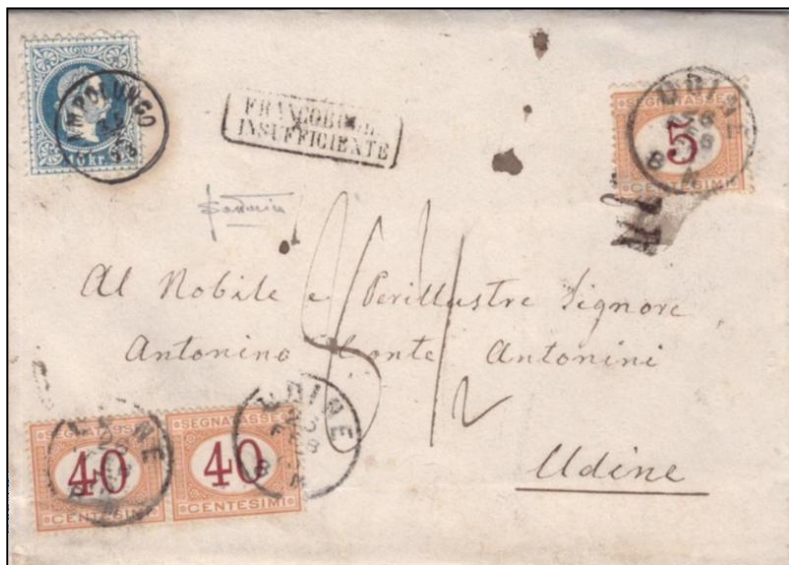 10 kr.
FRANCOBOLLO
INSUFFICIENTE
UDINE
SEGNATASSE
5
CENTESIMI
Al Nobile e Perillustre Signore
Antonino Conte Antonini
Udine
UDINE
SEGNATASSE
40
CENTESIMI
UDINE
SEGNATASSE
40
CENTESIMI